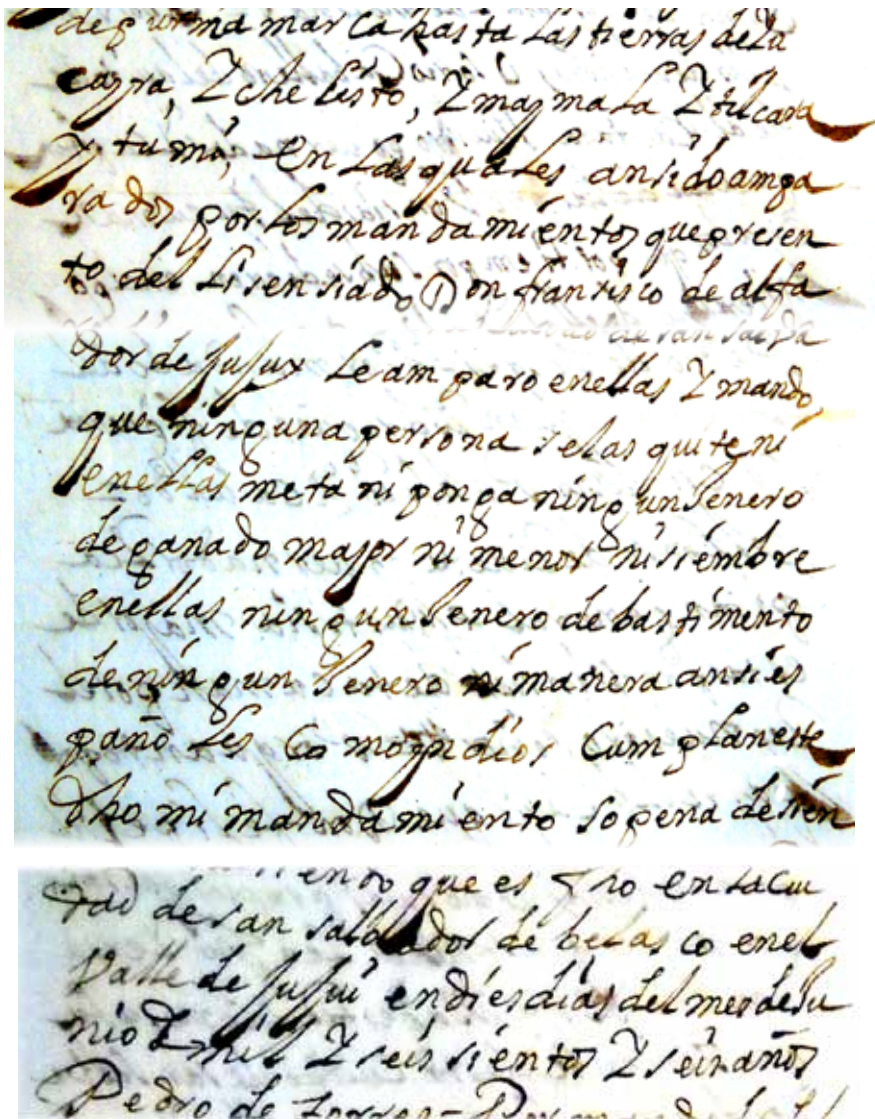 de purmamarca hasta las tierras de la
cayra, y che listo, y maymala y tilcara
y tumá, en las quales an sido ampa
rados por los mandamientos que presen
to del lisensiado Don fransisco de alfa
dor de Jujuy le amparo en ellas y mando
que ninguna persona se las quite ni
en ellas meta ni ponga ningun Jenero
de ganado major ni menor ni siembre
en ellas ningun Jenero de bastimento
de ningun Jenero ni manera ansi es
pañoles como yndios cumplan este
dho mi mandamiento so pena de sien
que es fho en la ciu
dad de san salbador de belasco en el
Valle de Jujui en dies dias del mes de Ju
nio de mil y seis sientos y seis años
Pedro de torres -